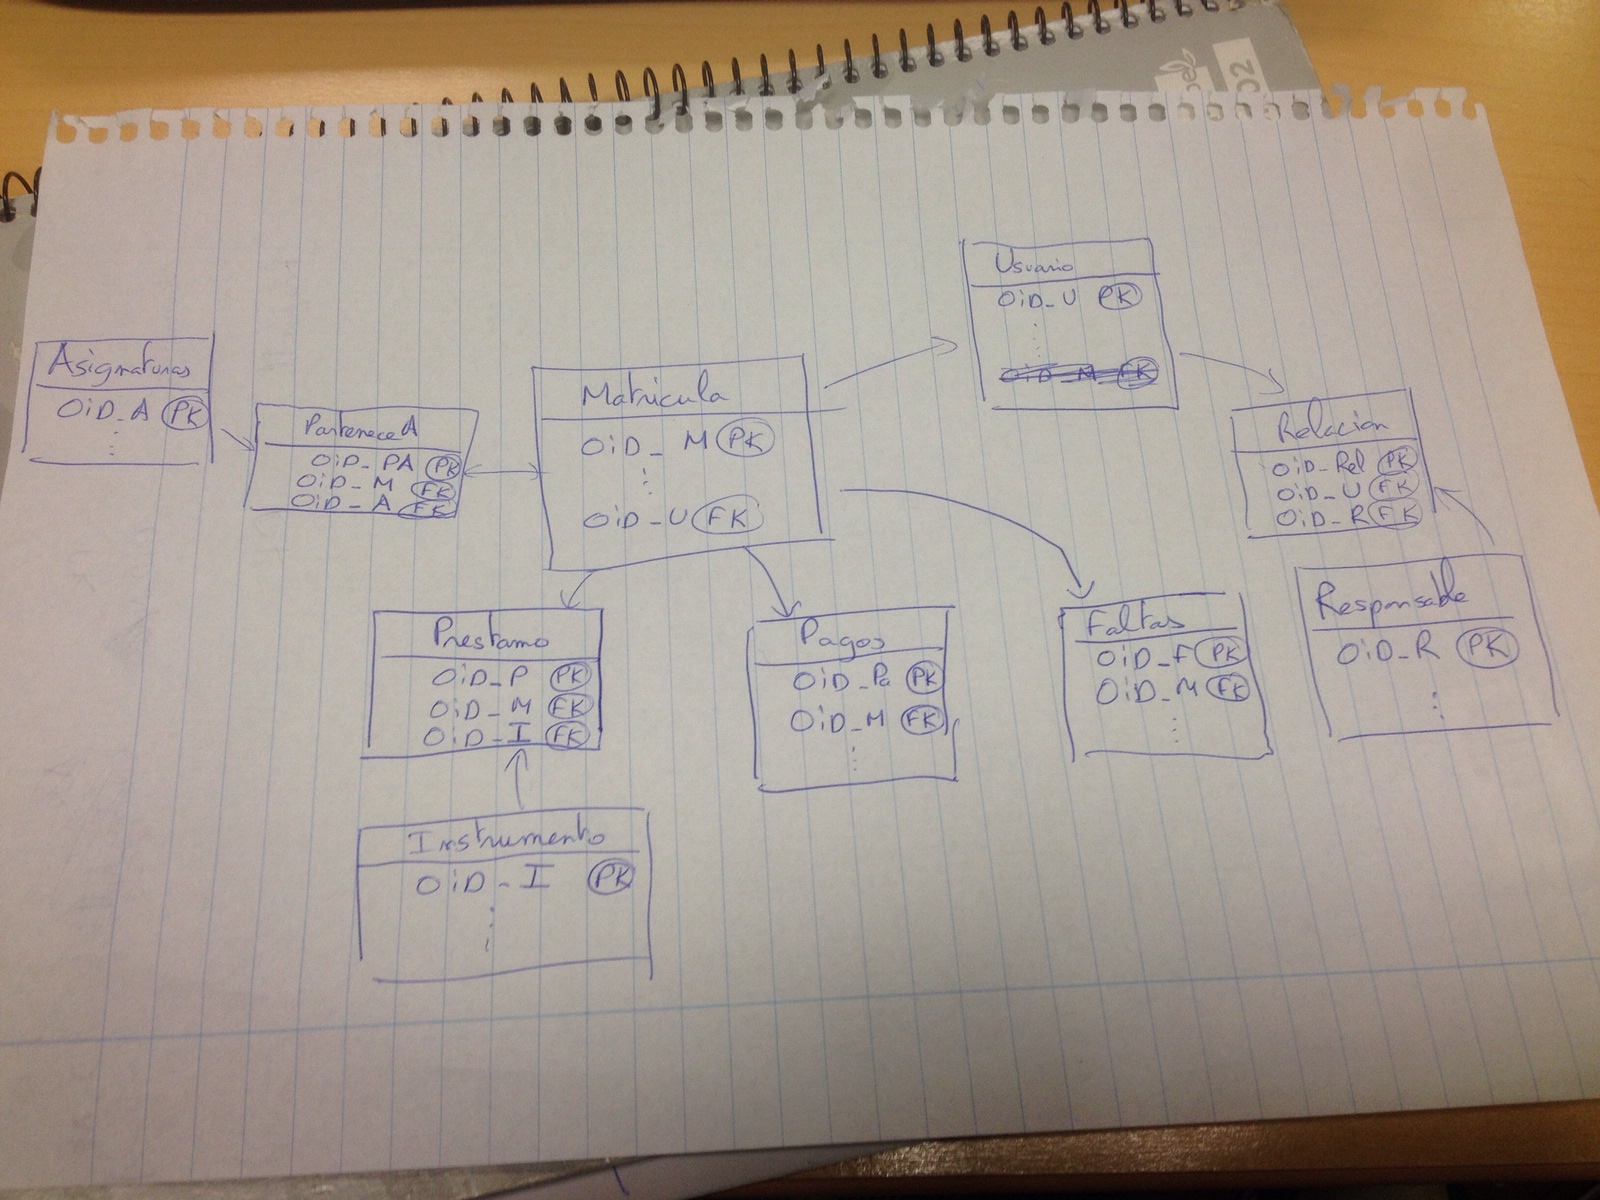 Usuario
OiD_U PK
Asignaturas
OiD_A PK
Pertenece A
OiD_PA PK
OiD_M FK
OiD_A FK
Matricula
OiD_M PK
OiD_U FK
Relación
OiD_Rel PK
OiD_U FK
OiD_R FK
Prestamo
OiD_P PK
OiD_M FK
OiD_I FK
Pagos
OiD_Pa PK
OiD_M FK
Faltas
OiD_F PK
OiD_M FK
Responsable
OiD_R PK
Instrumento
OiD_I PK